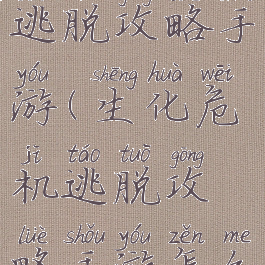 逃脱攻略手
yóu shēng huà wēi
游(生化危
jī táo tuō gōng
机逃脱攻
lüè shǒu yóu zěn me
略手游怎么